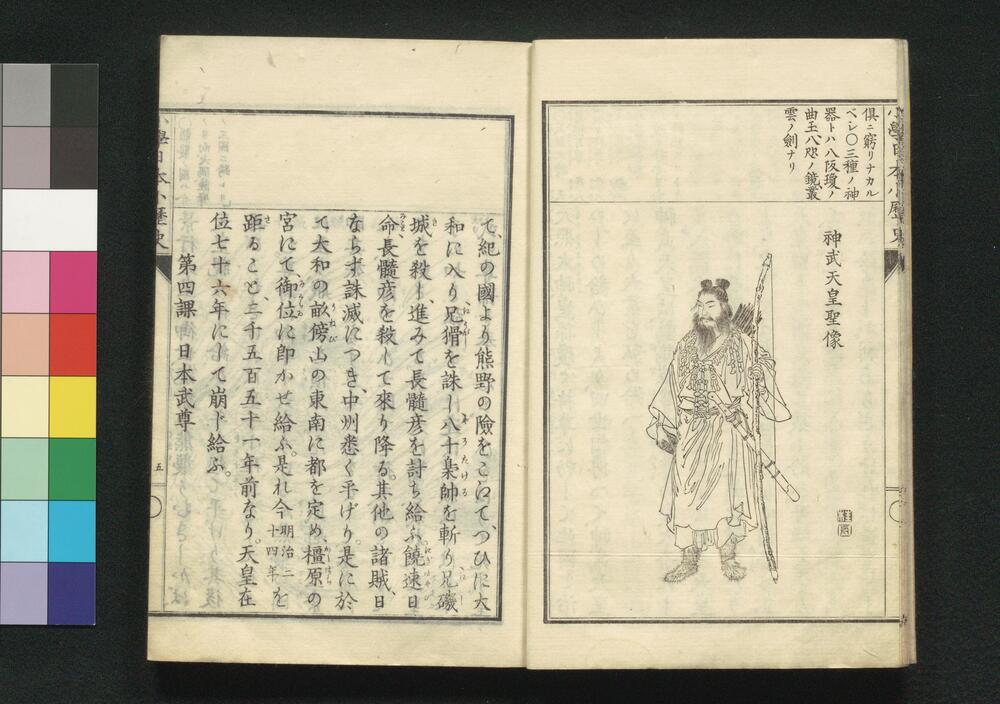 倶ニ窮リナカル
ベシ〇三種ノ神
器トハ八阪瓊ノ
曲玉八咫ノ鏡叢
雲ノ劍ナリ
神武天皇聖像
て、紀の國より熊野の險をこえて、つひに大
和に入り、兄猾を誅し、八十梟帥を斬り、兄磯
城を殺し、進みて長髓彦を討ち給ふ。饒速日
命長髓彦を殺して來り降る。其他の諸賊、日
ならず誅滅につき、中州悉く平げり。是に於
て大和の畝傍山の東南に都を定め、橿原の
宮にて、御位に即かせ給ふ。是れ今明治二十四年を
距ること、二千五百五十一年前なり。天皇在
位七十六年にして崩じ給ふ。
第四課 日本武尊
五